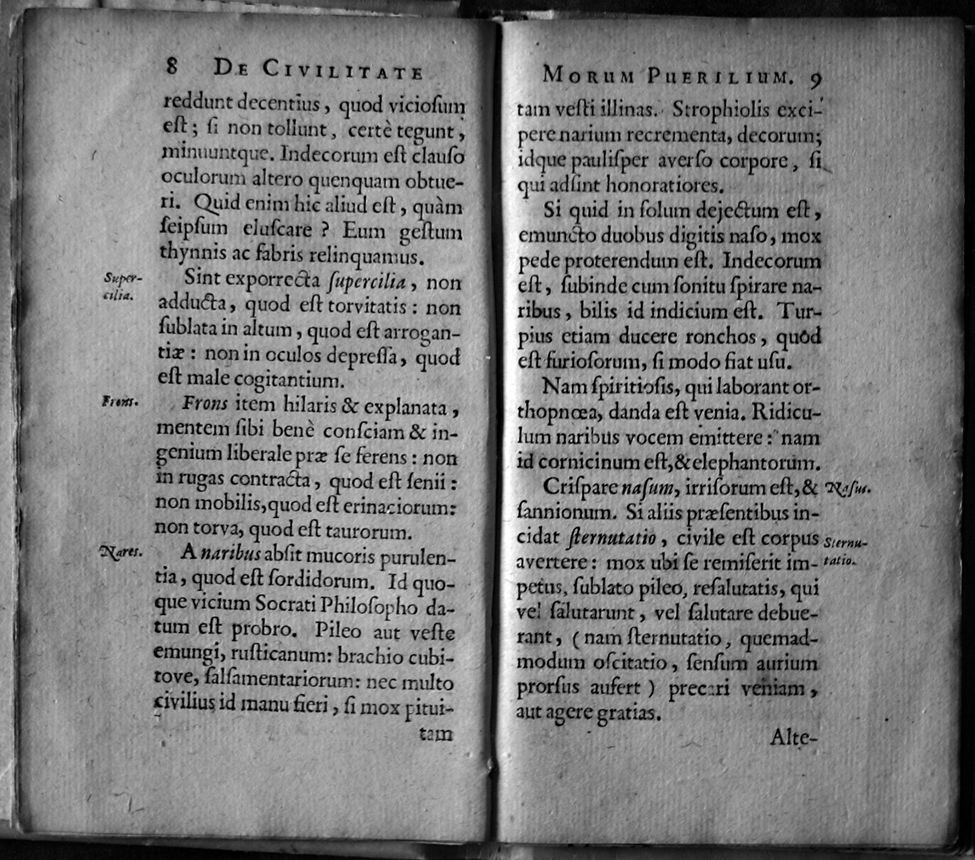 8 DE CIVILITATE
reddunt decentius, quod viciosum
est; si non tollunt, certè tegunt,
minuuntque. Indecorum est clauso
oculorum altero quenquam obtue-
ri. Quid enim hic aliud est, quàm
seipsum eluscare? Eum gestum
thynnis ac fabris relinquamus.
Super-
cilia.
Sint exporrecta supercilia, non
adducta, quod est torvitatis: non
sublata in altum, quod est arrogan-
tiæ: non in oculos depressa, quod
est male cogitantium.
Frons.
Frons item hilaris & explanata,
mentem sibi benè consciam & in-
genium liberale præ se ferens: non
in rugas contracta, quod est senii:
non mobilis, quod est erinaciorum:
non torva, quod est taurorum.
Nares.
A naribus absit mucoris purulen-
tia, quod est sordidorum. Id quo-
que vicium Socrati Philosopho da-
tum est probro. Pileo aut veste
emungi, rusticanum: brachio cubi-
tove, salsamentariorum: nec multo
civilius id manu fieri, si mox pitui-
tam
MORUM PUERILIUM. 9
tam vesti illinas. Strophiolis exci-
pere narium recrementa, decorum;
idque paulisper averso corpore, si
qui adsint honoratiores.
Si quid in solum dejectum est,
emuncto duobus digitis naso, mox
pede proterendum est. Indecorum
est, subinde cum sonitu spirare na-
ribus, bilis id indicium est. Tur-
pius etiam ducere ronchos, quod
est furiosorum, si modo fiat usu.
Nam spiritiosis, qui laborant or-
thopnœa, danda est venia. Ridicu-
lum naribus vocem emittere: nam
id cornicinum est, & elephantorum.
Crispare nasum, irrisorum est, &
Nasus.
sannionum. Si aliis præsentibus in-
cidat sternutatio, civile est corpus
Sternu-
tatio.
avertere: mox ubi se remiserit im-
petus, sublato pileo, resalutatis, qui
vel salutarunt, vel salutare debue-
rant, (nam sternutatio, quemad-
modum oscitatio, sensum aurium
prorsus aufert) precari veniam,
aut agere gratias.
Alte-